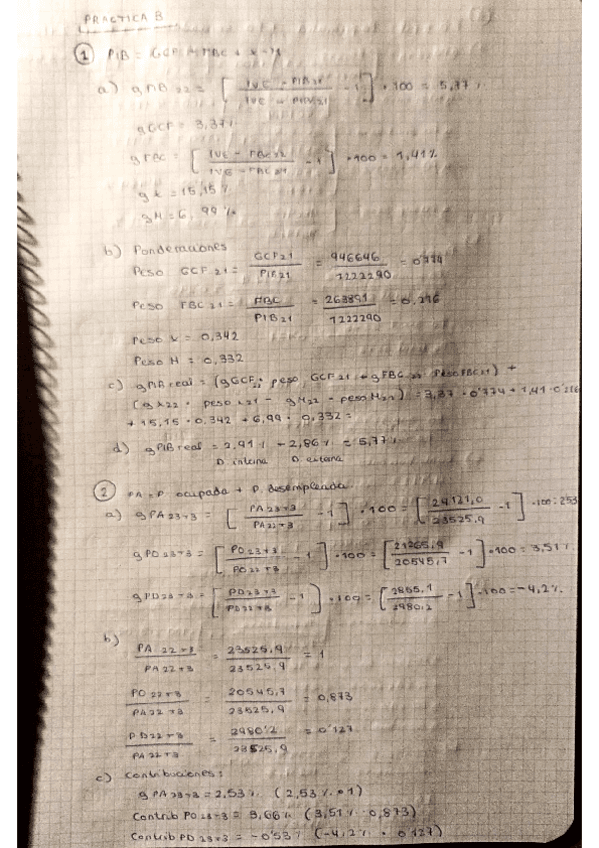 PRACTICA B
1 PIB = GCF + FBC + X - M
a) gPIB 22 = [ IVE - PIB22 / IVE - PIB21 - 1 ] · 100 = 5,77 %
gGCF = 3,37%
gFBC = [ IVE - FBC22 / IVE - FBC21 - 1 ] · 100 = 1,41%
gX = 15,15 %
gM = 6,99 %
b) Ponderaciones
Peso GCF 21 = GCF21 / PIB21 = 946646 / 1222290 = 0'774
Peso FBC 21 = FBC / PIB21 = 263891 / 1222290 = 0,216
Peso X = 0,342
Peso M = 0,332
c) gPIB real = (gGCF22 · peso GCF 21 + gFBC 22 · Peso FBC21) +
(gX22 · peso X21 - gM22 · peso M21) = 3,37 · 0'774 + 1,41 · 0'216
+ 15,15 · 0.342 + 6,99 · 0,332 =
d) gPIB real = 2,91 % + 2,86 % = 5,77 %
D. interna D. externa
2 PA = P. ocupada + P. desempleada
a) gPA 23T3 = [ PA 23T3 / PA22T3 - 1 ] · 100 = [ 24121,0 / 23525,9 - 1 ] · 100 = 2,53
gPO 23T3 = [ PO 23T3 / PO 22T3 - 1 ] · 100 = [ 21265,9 / 20545,7 - 1 ] · 100 = 3,51 %
gPD 23T3 = [ PD23T3 / PD22T3 - 1 ] · 100 = [ 2855,1 / 2980,2 - 1 ] · 100 = -4,2 %
b)
PA 22T3 / PA 22T3 = 23525,9 / 23525,9 = 1
PO 22T3 / PA22T3 = 20545,7 / 23525,9 = 0,873
PD22T3 / PA22T3 = 2980'2 / 23525,9 = 0'127
c) Contribuciones:
gPA 23T3 = 2,53 % (2,53 % · 1)
Contrib PO 23T3 = 3,06 % (3,51 % · 0,873)
Contrib PD 23T3 = -0'53 % (-4,2 % · 0'127)